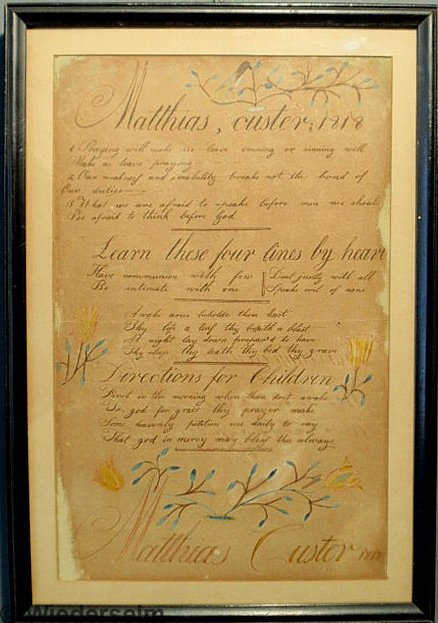 Matthias, custer, 1818
1 Praying will make us leave sinning or sinning will
Make us leave praying
2 Our weakness and inability breaks not the bond of
Our duties
3 What we are afraid to speake before men we should
Be afraid to think before God
Learn these four lines by heart
Have communion with few Deal justly with all
Be intimate with one Speake evil of none
Awake arise beholde thou hast
Thy life a leaf thy breath a blast
At night ly down prepar'd to have
Thy sleep thy death thy bed thy grave
Directions for Children
First in the morning when thou dost awake
To god for grace thy prayer make
Some heavenly petition use daily to say
That god in mercy may bless the always
Matthias Custer 1818
© Wiederseim